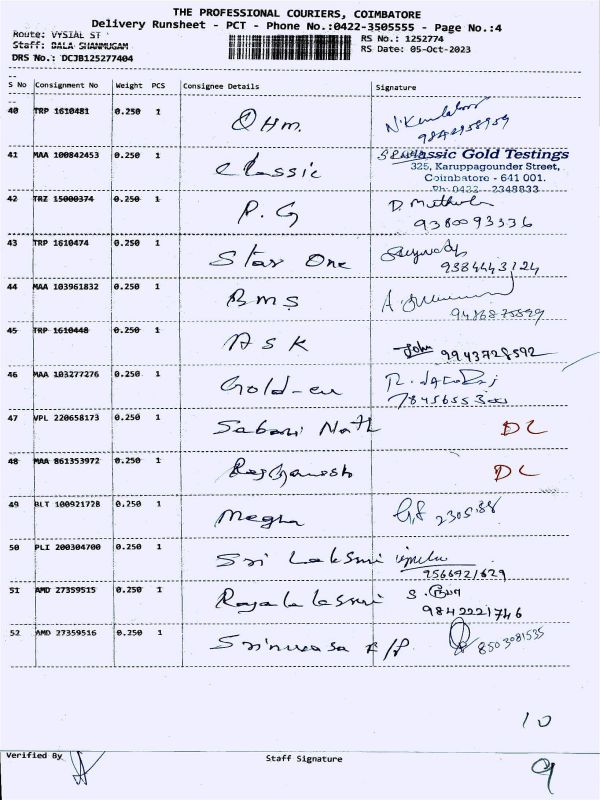 THE PROFESSIONAL COURIERS, COIMBATORE
Delivery Runsheet - PCT - Phone No.:0422-3505555 - Page No.:4
Route: VYSIAL ST
RS No.: 1252774
Staff: BALA SHANMUGAM
RS Date: 05-Oct-2023
DRS No.: DCJB125277404
S No Consignment No Weight PCS Consignee Details Signature
40 TRP 1610481 0.250 1 OHM.
41 MAA 100842453 0.250 1 Classic Classic Gold Testings
325, Karuppagounder Street,
Coimbatore - 641 001.
Ph: 0422 - 2348833
42 TRZ 15000374 0.250 1 P. G D. Muthu
9380093336
43 TRP 1610474 0.250 1 Star One
9384443124
44 MAA 103961832 0.250 1 BMS
45 TRP 1610448 0.250 1 A S K John 9943728592
46 MAA 103277276 0.250 1 Gold-en
47 VPL 220658173 0.250 1 Sabari Nath DL
48 MAA 861353972 0.250 1 DL
49 BLT 100921728 0.250 1 Megha
50 PLI 200304700 0.250 1 Sri Laksmi
9566421629
51 AMD 27359515 0.250 1 Rajalaksmi
9842221746
52 AMD 27359516 0.250 1 Srinivasa 8503081535
10
Verified By Staff Signature 9